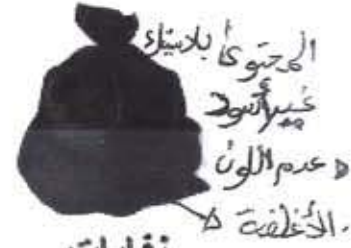 المحتوى بلاستيك
غير أسود
عدم اللون
الأغلفة.
نفايات